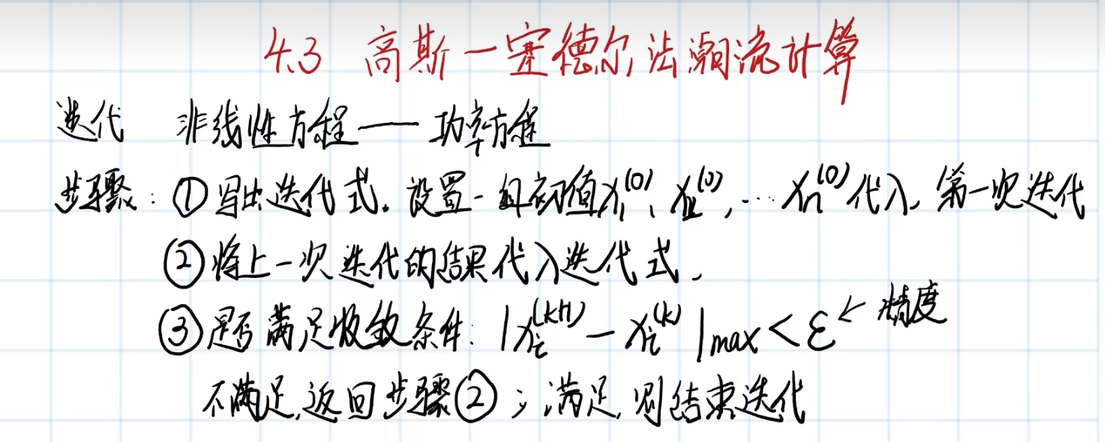 4.3 高斯一塞德尔法潮流计算
迭代 非线性方程——功率方程
步骤：①写出迭代式。设置一组初值x₁⁽⁰⁾、x₂⁽⁰⁾，…xₙ⁽⁰⁾代入，第一次迭代
②将上一次迭代的结果代入迭代式，
③是否满足收敛条件：|xᵢ⁽ᵏ⁺¹⁾－xᵢ⁽ᵏ⁾|max＜ε←精度
不满足，返回步骤②；满足，则结束迭代